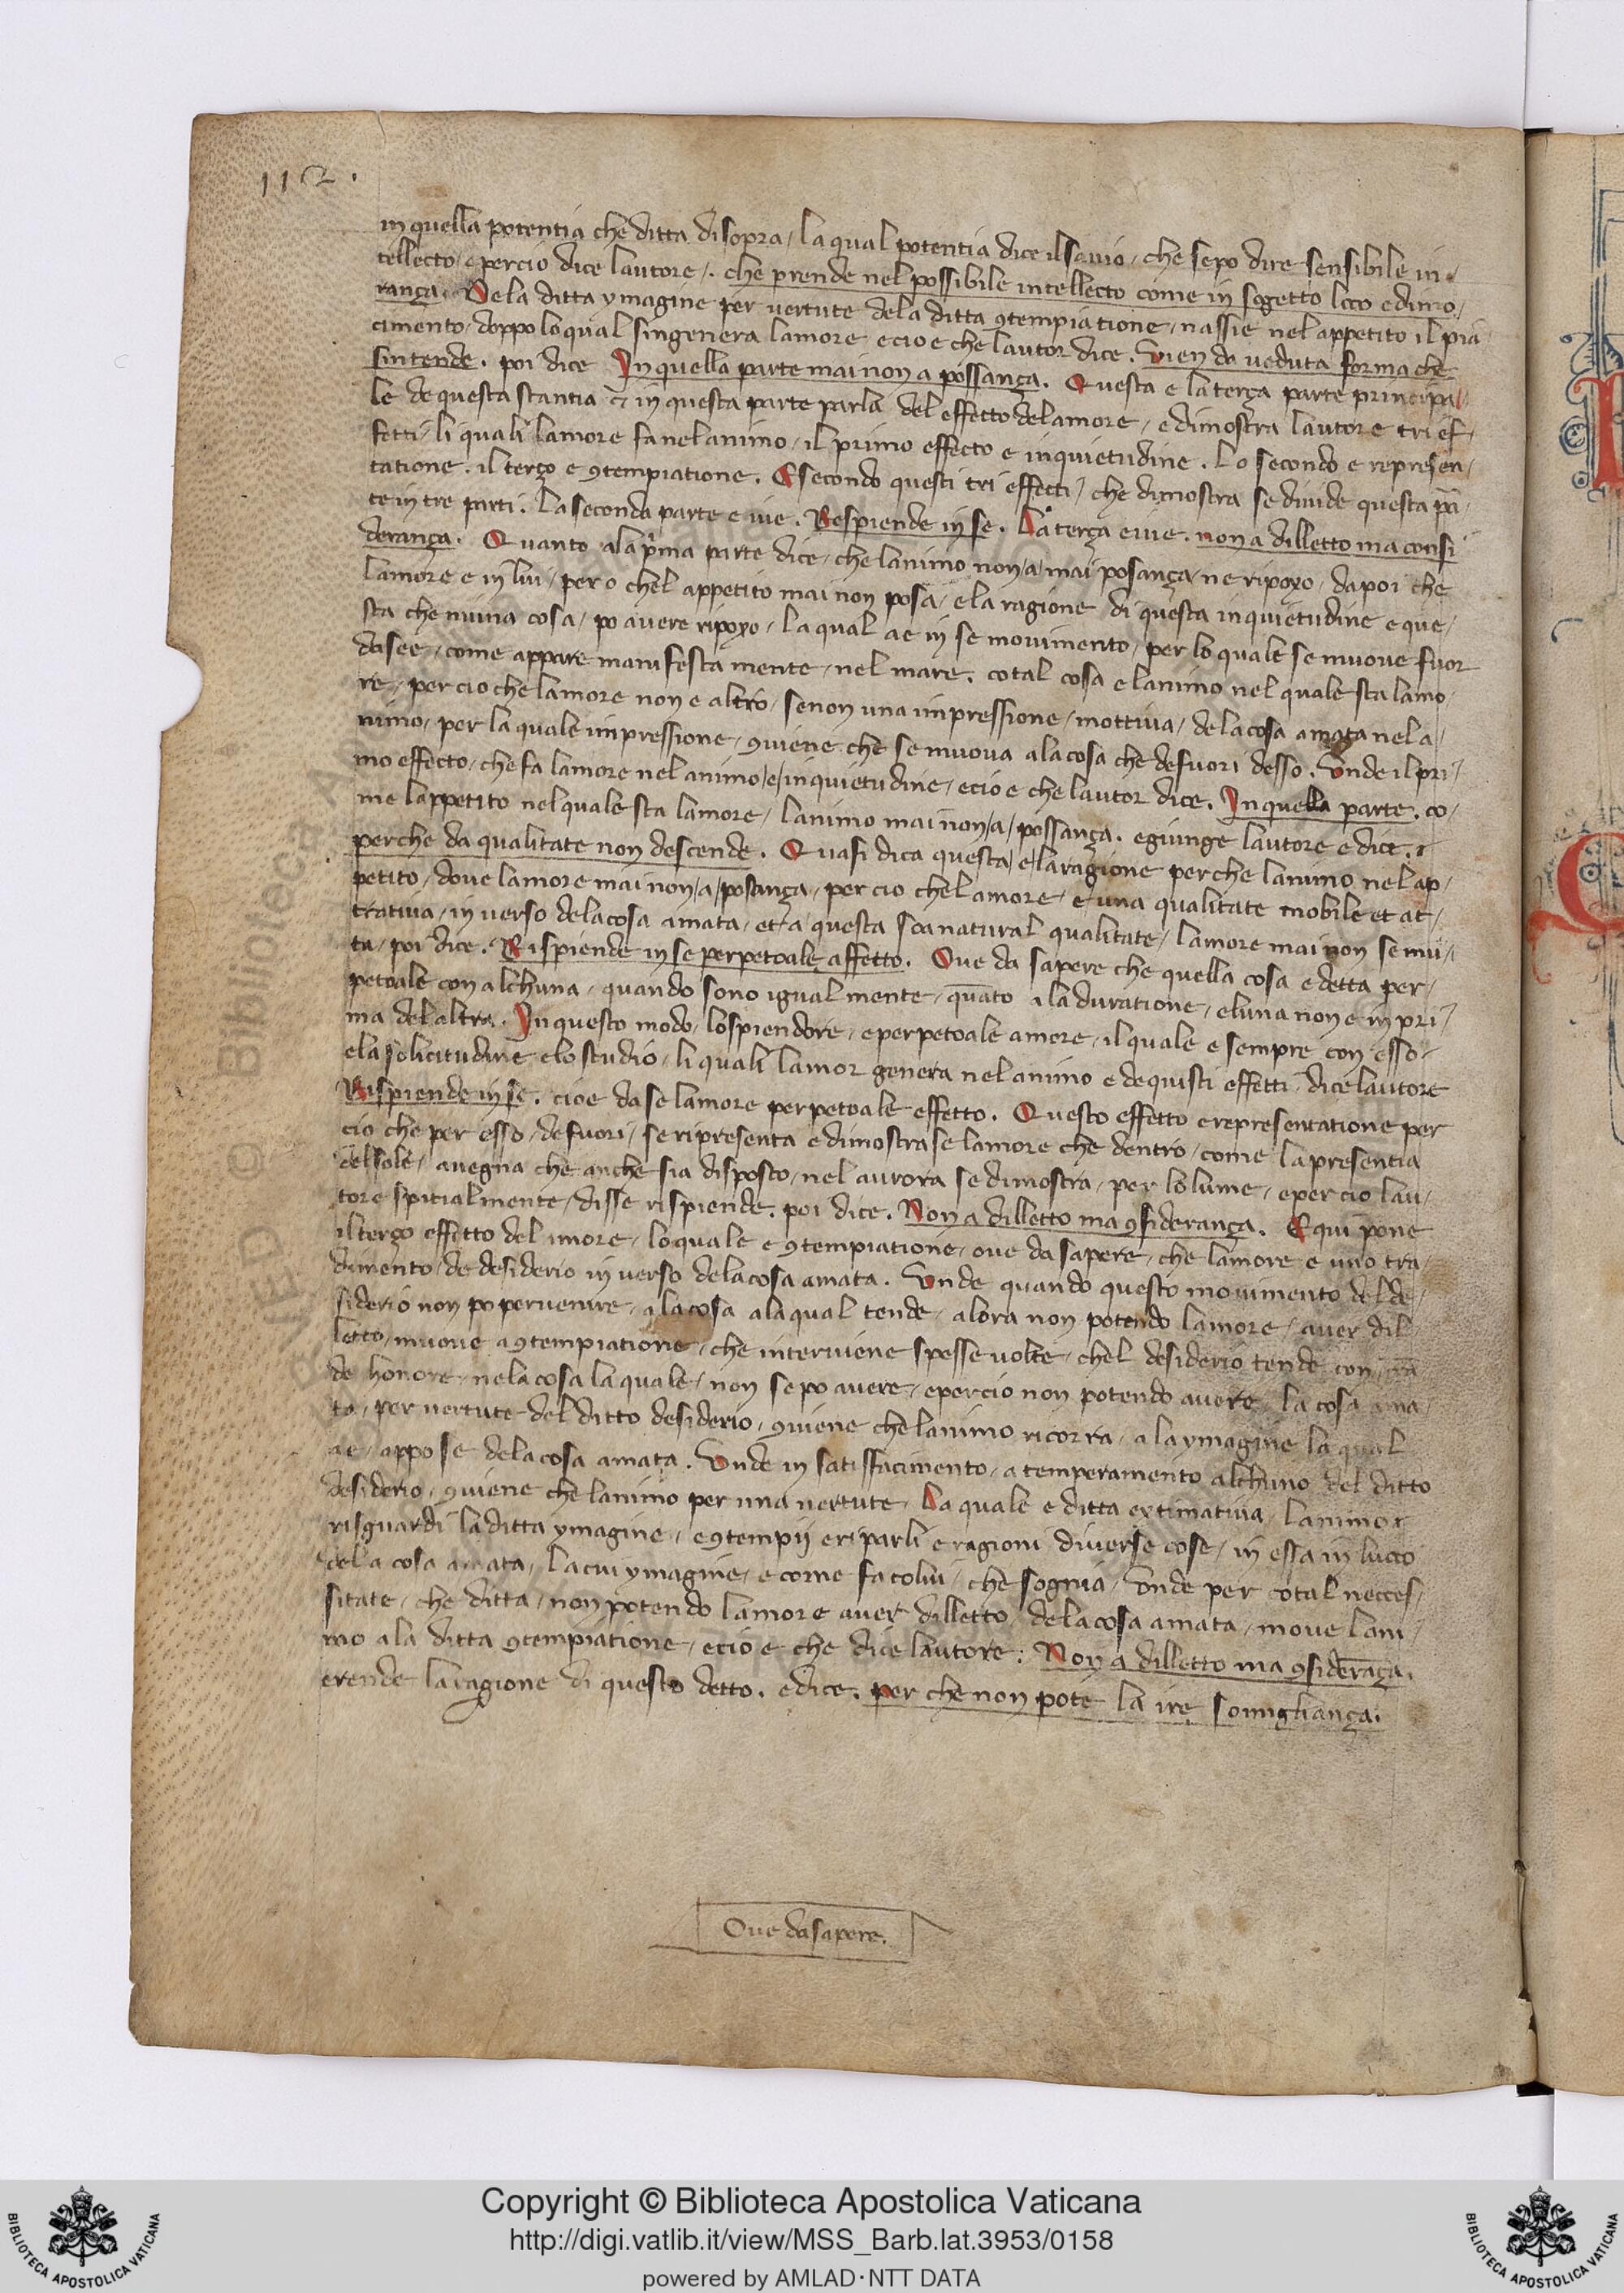 112.
in quella potentia che ditta disopra / la qual potentia dice il savio / che se po dire sensibile in /
tellecto / e percio dice lautore /. che prende nel possibile intellecto come in sogetto loco e dimo /
rança. De la ditta ymagine per vertute de la ditta 9tempiatione / nassie nel appetito il pia /
cimento / doppo lo qual singenera lamore e cio e che lautor dice. Vien da veduta forma che
sintende. poi dice In quella parte mai non a possança. Questa e la terça parte principa /
le de questa stantia & in questa parte parla del effetto del amore / e dimostra lautore tri ef /
fetti / li quali lamore fa nel animo / il primo effecto e inquietudine. Lo secondo e represen /
tatione. il terço e 9tempiatione. E secondo questi tri effecti / che dimostra se divide questa pā /
te in tre parti. La seconda parte e ivie. Resprende in se. La terça e ivie. non a dilletto ma consi
derança. Quanto a la p̄ma parte dice / che lanimo non / a / mai posança / ne ripoxo / da poi che
lamore e in lui / pero chel appetito mai non posa / e la ragione di questa inquietudine e que /
sta che niuna cosa / po avere ripoxo / la qual ae in se movimento / per lo quale se muove fuor
da see / come appare manifesta mente / nel mare. cotal cosa e lanimo nel quale sta lamo /
re / per cio che lamore non e altro / se non una impressione / mottiva / de la cosa amata nel a /
nimo / per la quale impressione / 9viene che se muova a la cosa che de fuori desso. Unde il pri /
mo effecto / che fa lamore nel animo / e / inquietudine / e cio e che lautor dice. In quella parte. co /
me lappetito nel quale sta lamore / lanimo mai non / a / possança. e giunge lautore e dice.
perche da qualitate non descende. Quasi dica questa / e / la ragione perche lanimo nel ap /
petito / dove lamore mai non / a / posança / per cio chel amore / e una qualitate mobile et at /
trativa / in verso de la cosa amata / et a questa soa natural qualitate / lamore mai non se mu /
ta / poi dice. Rispiende in se perpetoale affetto. Ove da sapere che quella cosa e detta per /
petoale con alchuna / quando sono igual mente / quāto a la duratione / e luna non e in pri /
ma del altra. In questo modo / lo spiendore / e perpetoale amore / il quale e sempre con esso /
e la solicitudine e lo studio / li quali lamor genera nel animo e de quisti effetti dice lautore
Rispiende in se. cioe da se lamore perpetoale effetto. Questo effetto e representatione per
cio che per esso / de fuori / se ripresenta e dimostrase lamore che dentro / come la presentia
del sole / avegna che anche sia disposto / nel aurora se dimostra / per lo lume / e per cio lau /
tore spitialmente / disse rispiende. poi dice. Non a dilletto ma 9siderança. E qui pone
il terço effetto del imore / lo quale e 9tempiatione / ove da sapere / che lamore e uno tra /
dimento / de desiderio in verso de la cosa amata. Unde quando questo movimento del de /
siderio non po pervenire / a la cosa a la qual tende / alora non potendo lamore / aver dil /
letto / muove a 9tempiatione / che interviene spesse volte / chel desiderio tende con
de honore / ne la cosa la quale / non se po avere / e percio non potendo avere / la cosa ama /
ta / per vertute del ditto desiderio / 9viene che lanimo ricorra / a la ymagine la qual
ae / appo se de la cosa amata. Unde in satisffacimento / a temperamento alchuno del ditto
desiderio / 9viene che lanimo per una vertute / La quale e ditta extimativa / lanimo
risguardi la ditta ymagine / e 9tempij e riparli e ragioni diverse cose / in essa in lucco
de la cosa amata / la cui ymagine / e come fa colui / che sognia / Unde per cotal necces /
sitate / che ditta / non potendo lamore aver dilletto / de la cosa amata / move lani /
mo a la ditta 9tempiatione / e cio e che dice lautore: Non a dilletto ma 9siderāça.
e rende la ragione di questo detto. e dice. per che non pote la ire somigliança.
Ove da sapere.
Copyright © Biblioteca Apostolica Vaticana
http://digi.vatlib.it/view/MSS_Barb.lat.3953/0158
powered by AMLAD·NTT DATA
BIBLIOTECA APOSTOLICA VATICANA
BIBLIOTECA APOSTOLICA VATICANA